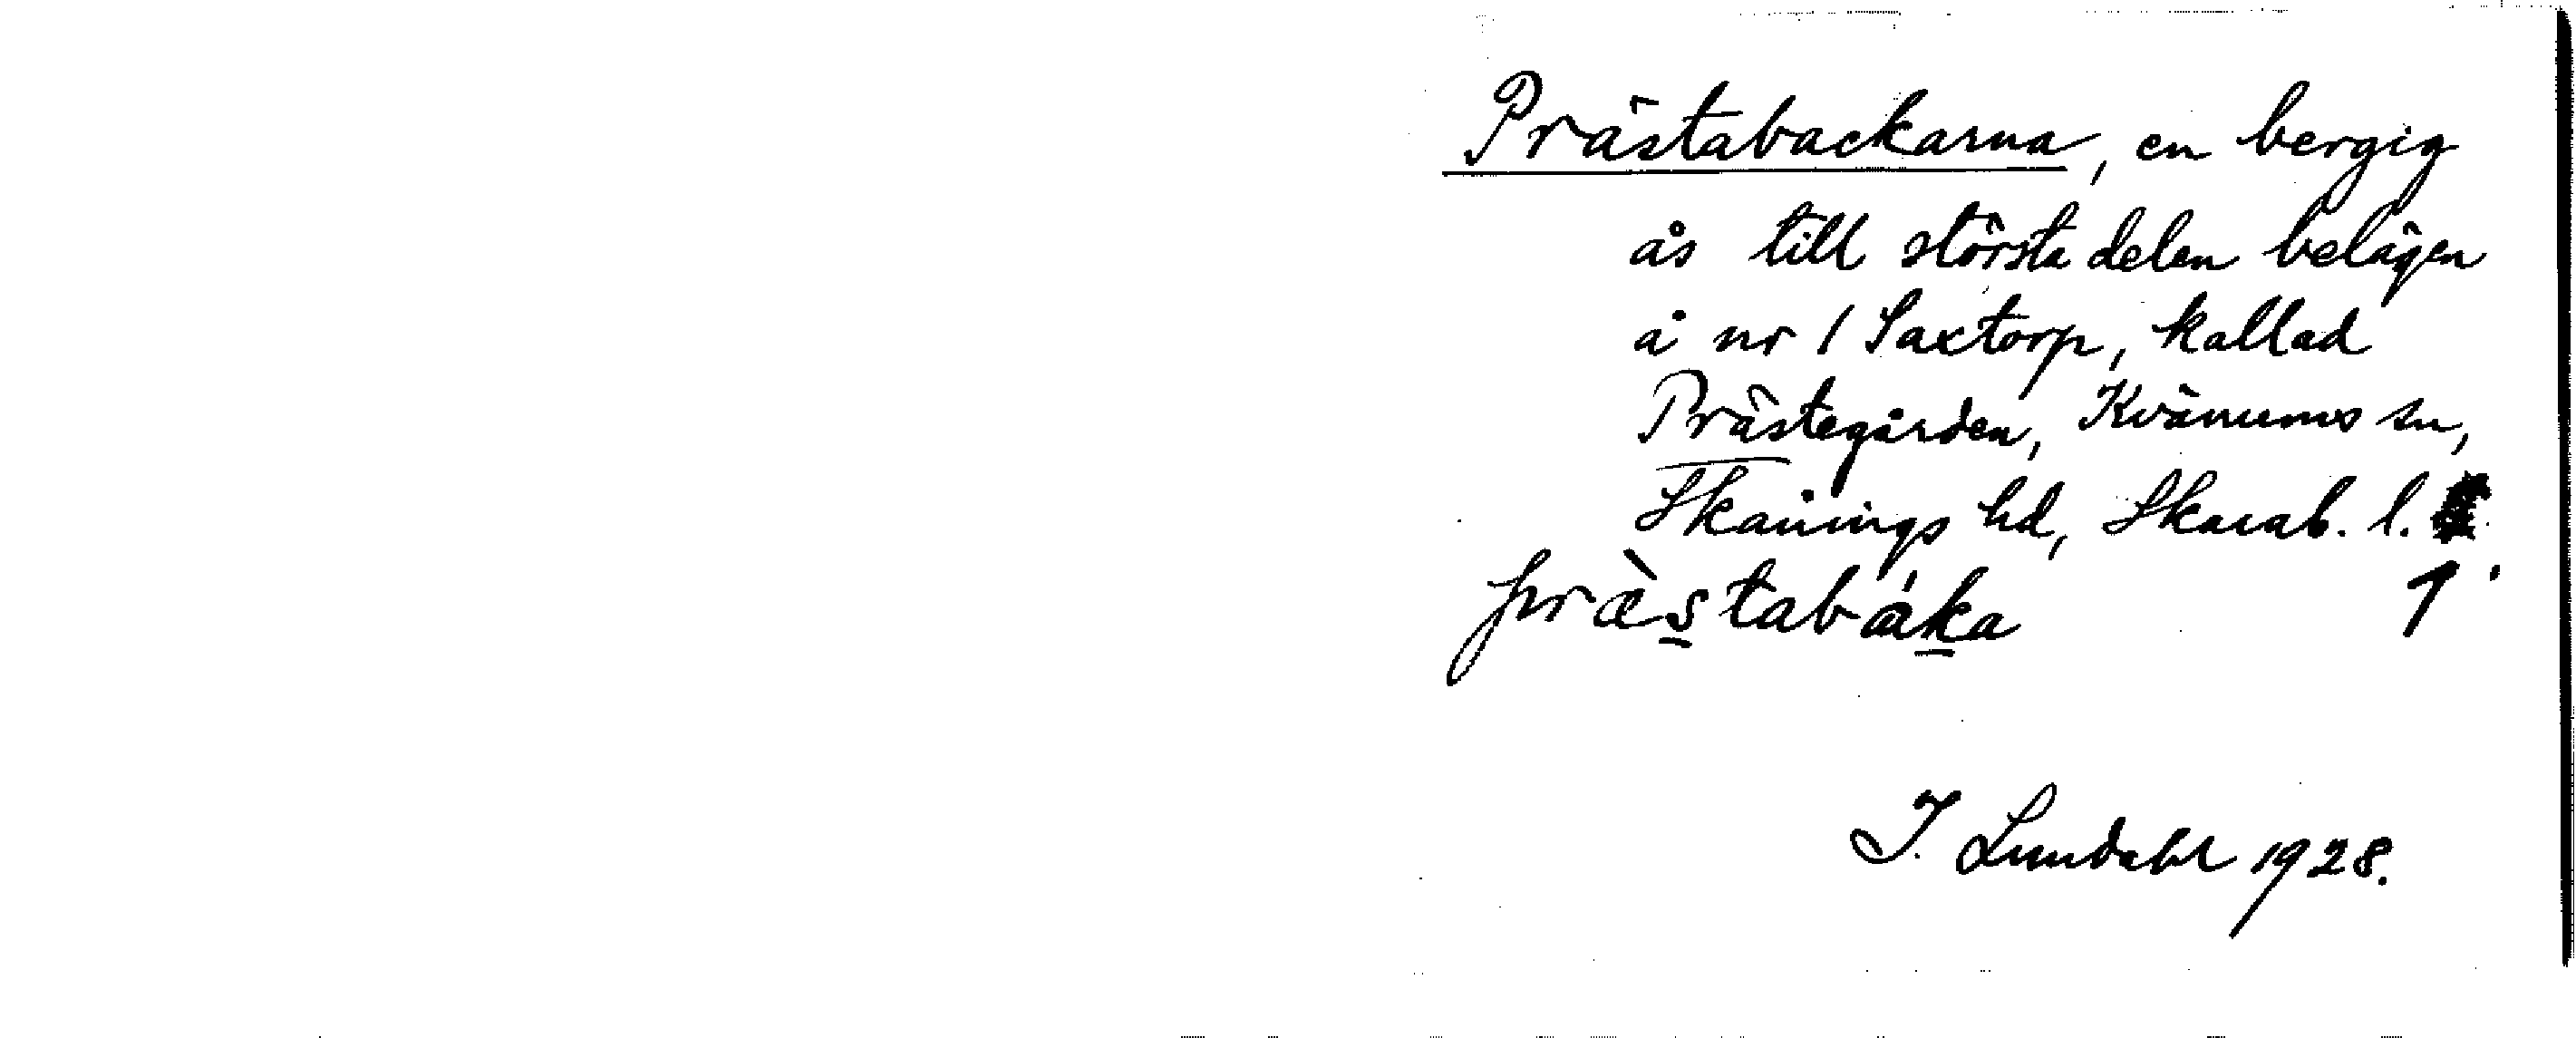 Prästabackarna, en bergig
ås till största delen belägen
å nr 1 Saxtorp, kallad
Prästegården, Kvänums sn,
Skånings hd, Skarab. l.
præ̀stabáka 1.
I. Lundahl 1928.